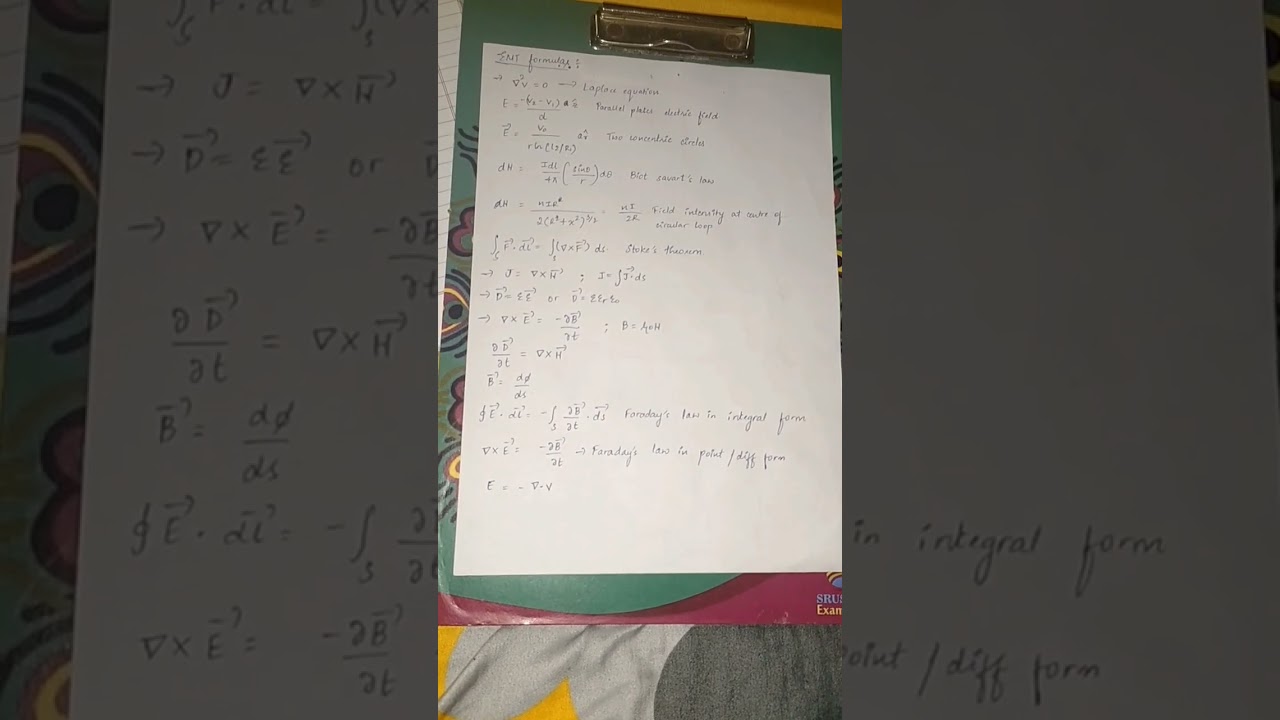 EMT formulas :
→ ∇²V = 0 → Laplace equation
E = -(V₂ - V₁)/d Parallel plates electric field
E⃗ = V₀/(r ln( / )) ar̂ Two concentric circles
dH = Idl/4π (sinθ/r) dθ Biot savart's law
dH = nIR²/2(R²+x²)^3/2 = nI/2R Field intensity at centre of
circular loop
∫s F⃗ · dl⃗ = ∫s (∇×F⃗) ds Stoke's theorem
→ J = ∇×H⃗ ; I = ∫J⃗·ds
→ D⃗ = εE⃗ or D⃗ =
→ ∇×E⃗ = -∂B⃗/∂t ; B = μ₀H
∂D⃗/∂t = ∇×H⃗
B⃗ = dϕ/ds
∮E⃗ · dl⃗ = -∫s ∂B⃗/∂t · ds⃗ Faraday's law in integral form
∇×E⃗ = -∂B⃗/∂t → Faraday's law in point/diff form
E = - ∇·V